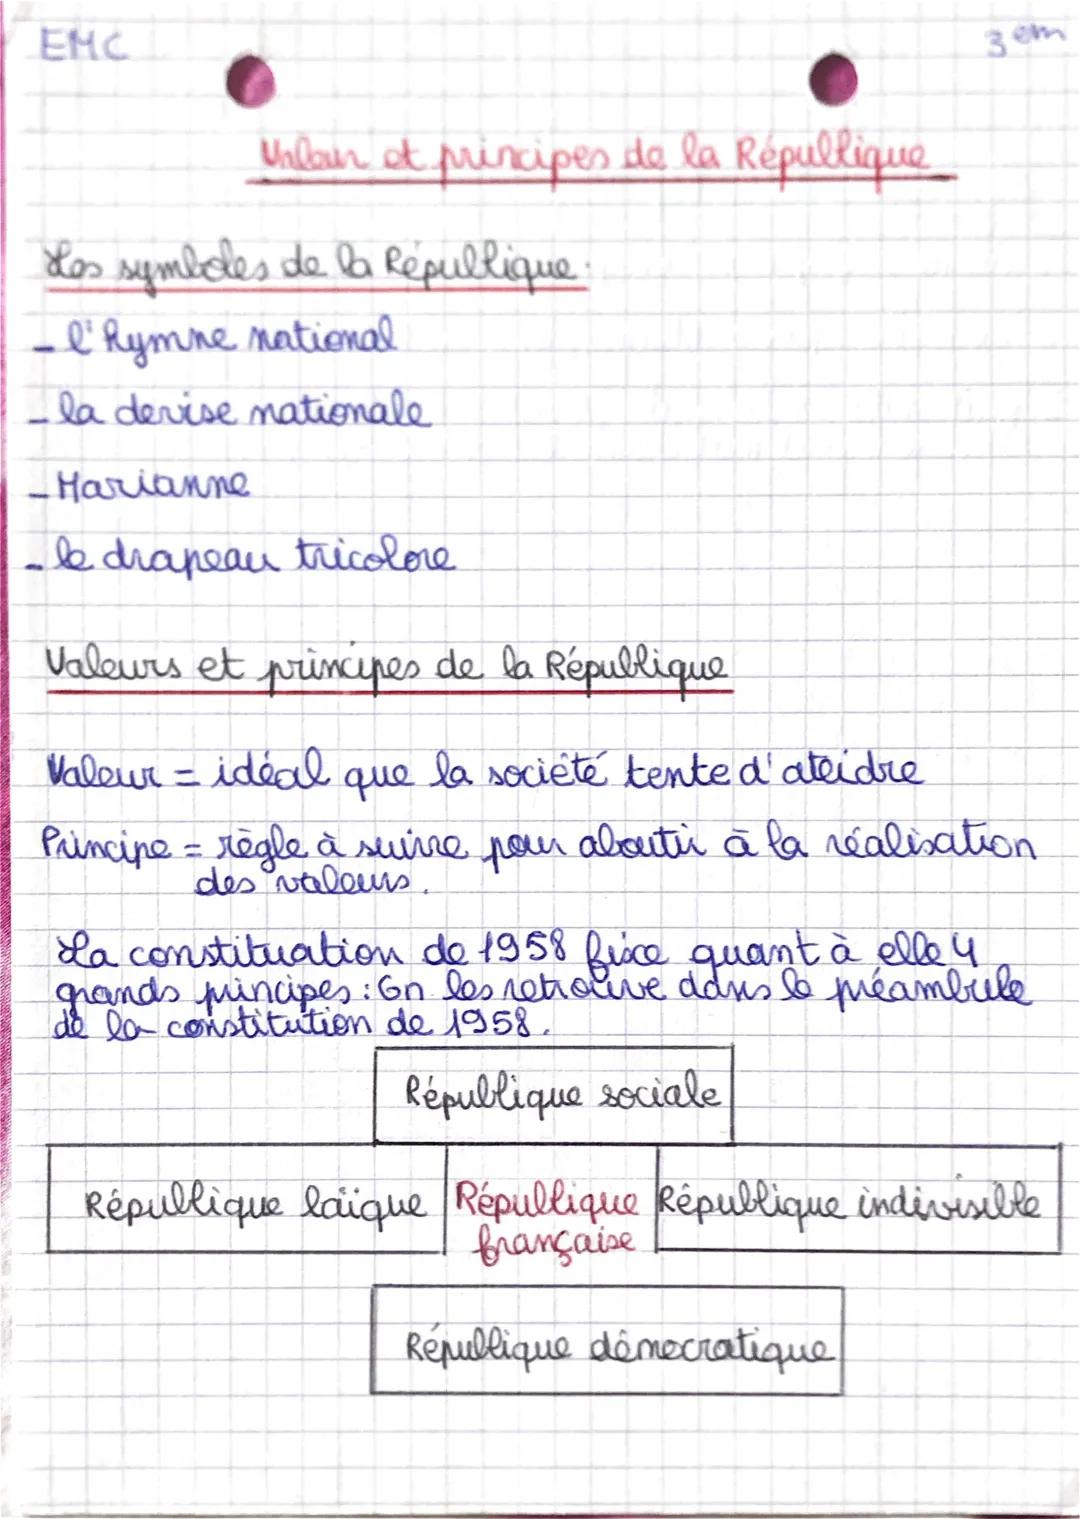 EMC
3 em
Valeur et principes de la République
Les symboles de la République.
- l'hymne national
- la devise nationale
- Marianne
- le drapeau tricolore
Valeurs et principes de la République
Valeur = idéal que la société tente d'ateidre
Principe = règle à suivre pour aboutir à la réalisation
des valeurs.
La constituation de 1958 fixe quant à elle 4
grands principes : On les retrouve dans le préambule
de la constitution de 1958.
République sociale
République laïque
République
française
République indivisible
République démocratique